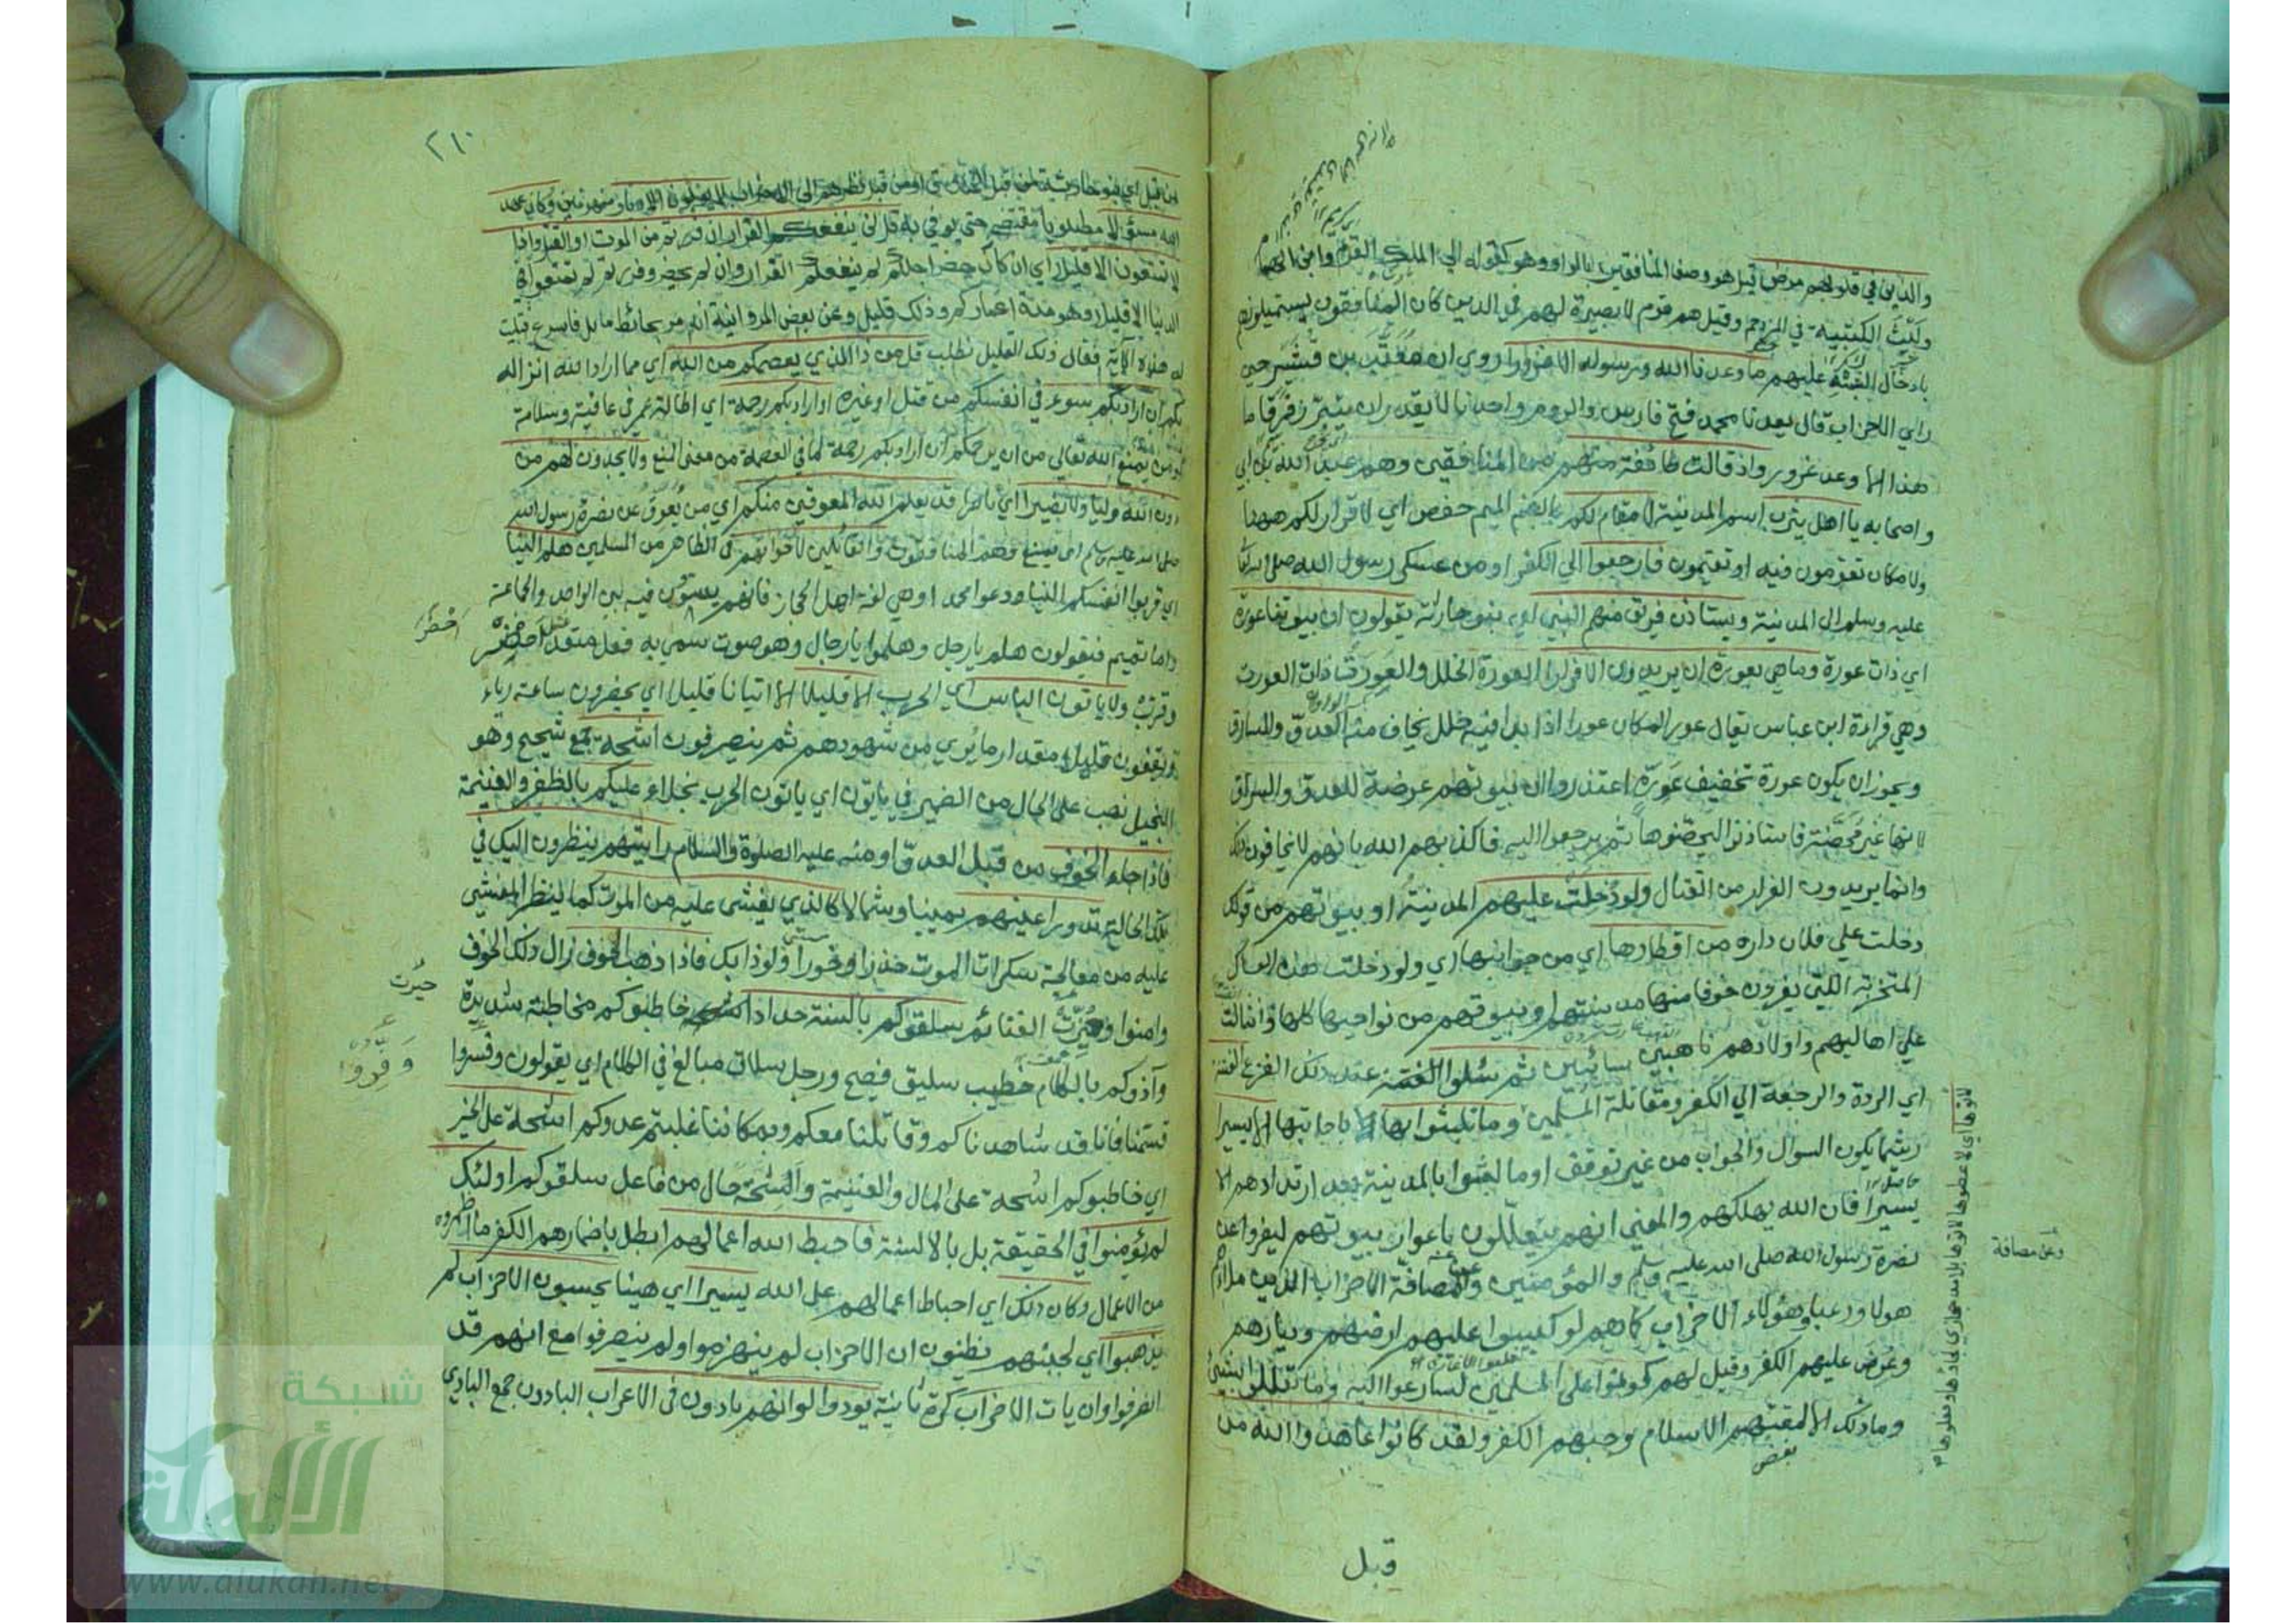 والذين في قلوبهم مرض قيل هو وصف المنافقين بالواو وهو كقوله الي الملك القرم وابن الهمام
وليث الكتيبة في المزدحم وقيل هم قوم لا بصيرة لهم في الدين كان المنافقون يستميلونهم
بادخال الشبه عليهم ما وعدنا الله ورسوله الا غرورا روي ان معتب بن قشير حين
راي الاحزاب قال يعدنا محمد فتح فارس والروم واحدنا لا يقدر ان يتبرز فرقا ما
هذا الا وعد غرور واذ قالت طائفة منهم من المنافقين وهم عبد الله بن ابي
واصحابه يا اهل يثرب اسم المدينة لا مقام لكم بالضم الميم حفص اي لا قرار لكم ههنا
ولا مكان تقومون فيه او تقيمون فارجعوا الي الكفر او من عسكر رسول الله صلى الله
عليه وسلم الى المدينة ويستاذن فريق منهم النبي اي بنو حارثة يقولون ان بيوتنا عورة
اي ذات عورة وما هي بعورة ان يريدون الا فرارا العورة الخلل والعورة ذات العورة
وهي قراءة ابن عباس يقال عور المكان عورا اذا بدا فيه خلل يخاف منه العدو والسارق
ويجوز ان يكون عورة تخفيف عورة اعتذروا ان بيوتهم عرضة للعدو والسراق
لانها غير محصنة فاستاذنوا ليحصنوها ثم يرجعوا اليه فاكذبهم الله بانهم لا يخافون ذلك
وانما يريدون الفرار من القتال ولو دخلت عليهم المدينة او بيوتهم من قولك
دخلت علي فلان داره من اقطارها اي من جوانبها اي ولو دخلت هذه العساكر
المتحزبة اللتي يفرون خوفا منها مدينتهم وبيوتهم من نواحيها كلها وانثالت
علي اهاليهم واولادهم ناهبين سائبين ثم سئلوا الفتنة عند ذلك الفزع الفتنة
اي الردة والرجعة الي الكفر ومقاتلة المسلمين وما تلبثوا بها باجابتها الا يسيرا
ريثما يكون السوال والجواب من غير توقف او ما لبثوا بالمدينة بعد ارتدادهم الا
يسيرا فان الله يهلكهم والمعني انهم يتعللون باعوار بيوتهم ليفروا عن
نصرة رسول الله صلى الله عليه وسلم والمؤمنين وعن مصافة الاحزاب الذين ملاؤهم
هولا ورعبا وهؤلاء الاحزاب كما هم لو كبسوا عليهم ارضهم وديارهم
وعرض عليهم الكفر وقيل لهم كونوا على المسلمين لسارعوا اليه وما تعللوا بشيء
وما ذلك الا لمقتهم الاسلام وحبهم الكفر ولقد كانوا عاهدوا الله من
وعن مصافة
قبل
٢١٠
من قبل اي بنو حارثة من قبل الخندق او من قبل نظرهم الي الاحزاب لا يولون الادبار منهزمين وكان عهد
الله مسؤلا مطلوبا مقتضى حتى يوفي به قل لن ينفعكم الفرار ان فررتم من الموت او القتل واذا
لا تمتعون الا قليلا اي ان كان حضر اجلكم لم ينفعكم الفرار وان لم يحضر وفررتم لم تمتعوا في
الدنيا الا قليلا وهو مدة اعماركم وذلك قليل وعن بعض المروانية انه مر بحائط مايل فاسرع فتليت
له هذه الآية فقال ذلك القليل نطلب قل من ذا الذي يعصمكم من الله اي مما اراد الله انزاله
بكم ان اراد بكم سوء في انفسكم من قتل او غيره او اراد بكم رحمة اي اطالة عمر في عافية وسلامة
او من يمنع الله تعالي من ان يرحمكم ان اراد بكم رحمة لما في العصمة من معنى المنع ولا يجدون لهم من
دون الله وليا ولا نصيرا اي ناصرا قد يعلم الله المعوقين منكم اي من يعوق عن نصرة رسول الله
صلى الله عليه وسلم اي يمنع وهم المنافقون والقائلين لاخوانهم في الظاهر من المسلمين هلم الينا
اي قربوا انفسكم الينا ودعوا محمدا وهي لغة اهل الحجاز فانهم يسوون فيه بين الواحد والجماعة
واما تميم فيقولون هلم يا رجل وهلموا يا رجال وهو صوت سمي به فعل متعد مثل احضر
وقرب ولا ياتون الباس اي الحرب الا قليلا الا اتيانا قليلا اي يحضرون ساعة رياء
ويقفون قليلا مقدار ما يري من شهودهم ثم ينصرفون اشحة جمع شحيح وهو
البخيل نصب على الحال من الضمير في ياتون اي ياتون الحرب بخلاء عليكم بالظفر والغنيمة
فاذا جاء الخوف من قبل العدو او منه عليه الصلوة والسلام رايتهم ينظرون اليك في
تلك الحالة تدور اعينهم يمينا وشمالا كالذي يغشى عليه من الموت كما ينظر المغشي
عليه من معالجة سكرات الموت حذرا وخورا ولوذا بك فاذا ذهب الخوف زال ذلك الخوف
وامنوا وحيزت الغنائم سلقوكم بالسنة حداد خاطبوكم مخاطبة شديدة
وآذوكم بالكلام خطيب سليق فصيح ورجل سلاق مبالغ في الكلام اي يقولون وفروا
قسمتنا فانا قد شاهدناكم وقاتلنا معكم وبمكاننا غلبتم عدوكم اشحة على الخير
اي خاطبوكم اشحة على المال والغنيمة واشحة حال من فاعل سلقوكم اولئك
لم يؤمنوا في الحقيقة بل بالالسنة فاحبط الله اعمالهم ابطل باضمارهم الكفر ما اظهروه
من الاعمال وكان ذلك اي احباط اعمالهم على الله يسيرا اي هينا يحسبون الاحزاب لم
يذهبوا اي لجبنهم يظنون ان الاحزاب لم ينهزموا ولم ينصرفوا مع انهم قد
انصرفوا وان يات الاحزاب كرة ثانية يودوا لو انهم بادون في الاعراب البادون جمع البادي
احضر
حيزت
وفروا
شبكة
الألوكة
www.alukah.net